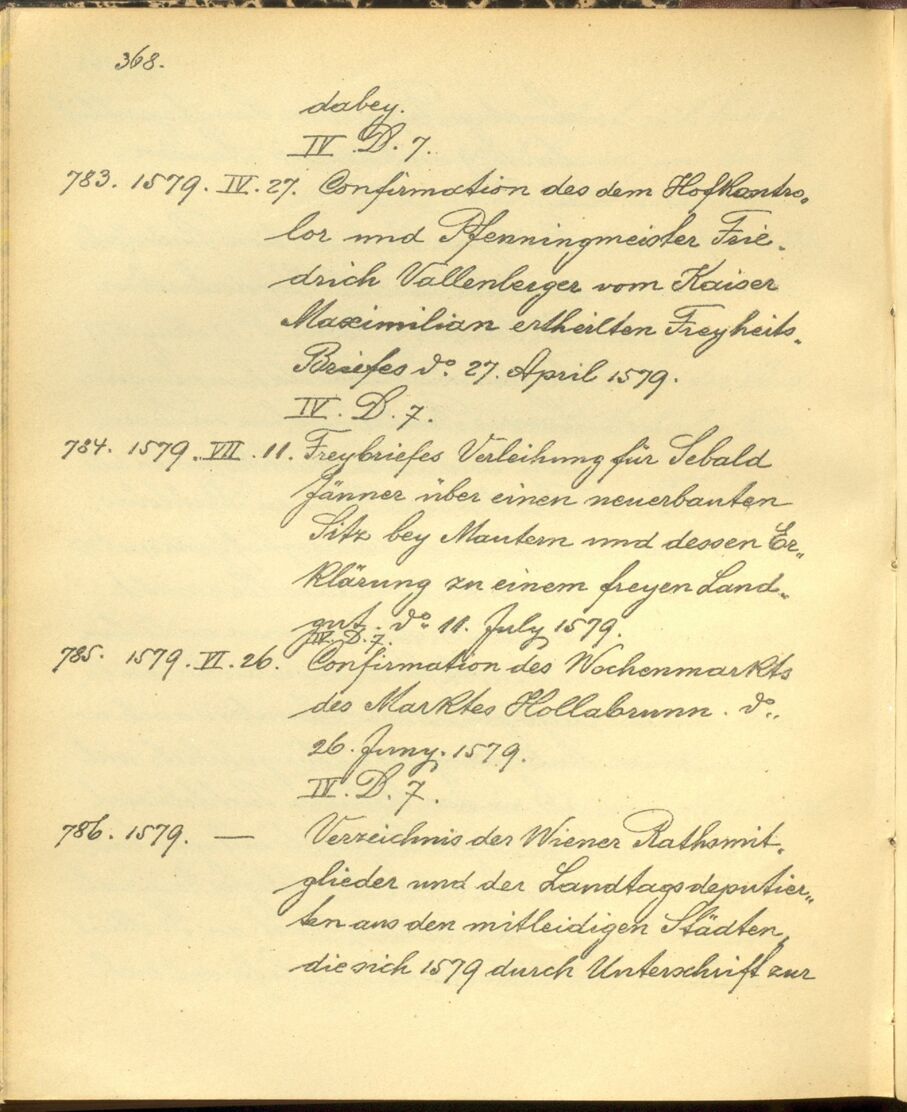 368.
dabey.
IV. D. 7.
783. 1579. IV. 27. Confirmation des dem Hofkontro„
lor und Pfenningmeister Frie„
drich Vallenberger vom Kaiser
Maximilian ertheilten Freyheits„
Briefes do. 27. April 1579.
IV. D. 7.
784. 1579. VII. 11. Freybriefes Verleihung für Sebald
Jänner über einen neuerbauten
Sitz bey Mautern und dessen Er„
klärung zu einem freyen Land„
gut. do. 11. July 1579.
IV. D. 7.
785. 1579. VI. 26. Confirmation des Wochenmarkts
des Marktes Hollabrunn. do.
26. Juny. 1579.
IV. D. 7.
786. 1579. — Verzeichnis der Wiener Rathsmit„
glieder und der Landtagsdeputier„
ten aus den mitleidigen Städten,
die sich 1579 durch Unterschrift zur